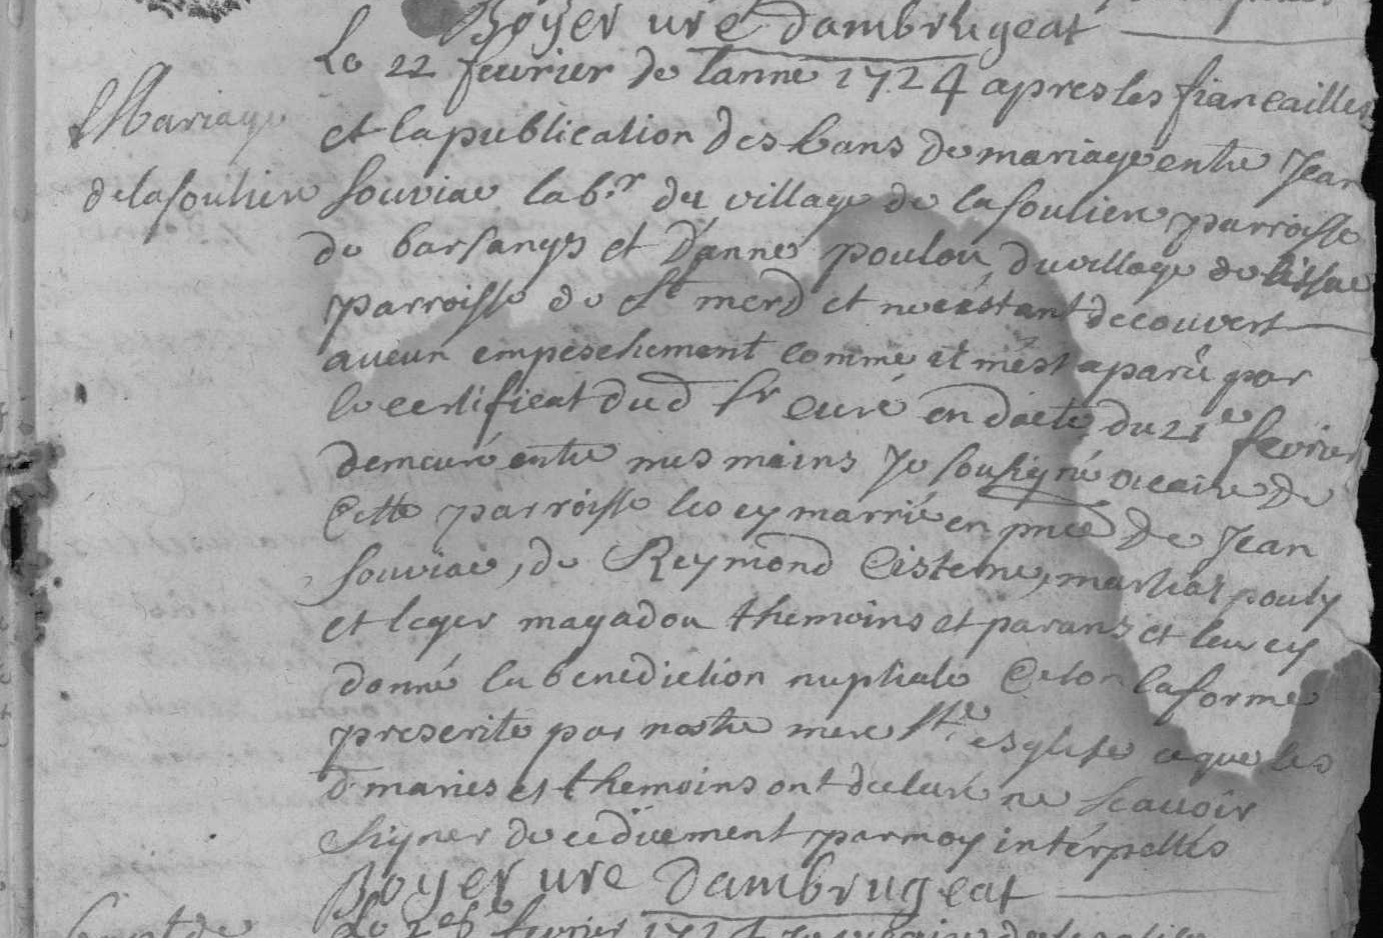 Boyer vre dambrugeat
Le 22 fevrier de lanne 1724 apres les fiancailles
Mariage
et la publication des bans de mariage entre Jean
de lasouliere
souviac lab.r du village de lasouliere parroisse
de barsanges et D'anne poulou du village de lissac
parroisse de St merd et ne cestant decouvert
aucun empeschement comme il m'est aparu par
le certificat dud Sr curé en dacte du 21e fevrier
demeuré entre mes mains Je sousigné vicaire de
Cette parroisse les ey marrié en pnce de Jean
souviac, de Reymond Cisterne, martial pouty
et leger magadou themoins et parans et leur ey
donné la benediction nuptiale Celon la forme
prescrite par nostre mere Ste esglise ce que les
d maries et themoins ont declare ne scauoir
signer de ce duement par moy interpellés
Boyer vre dambrugeat
fevrier 1724